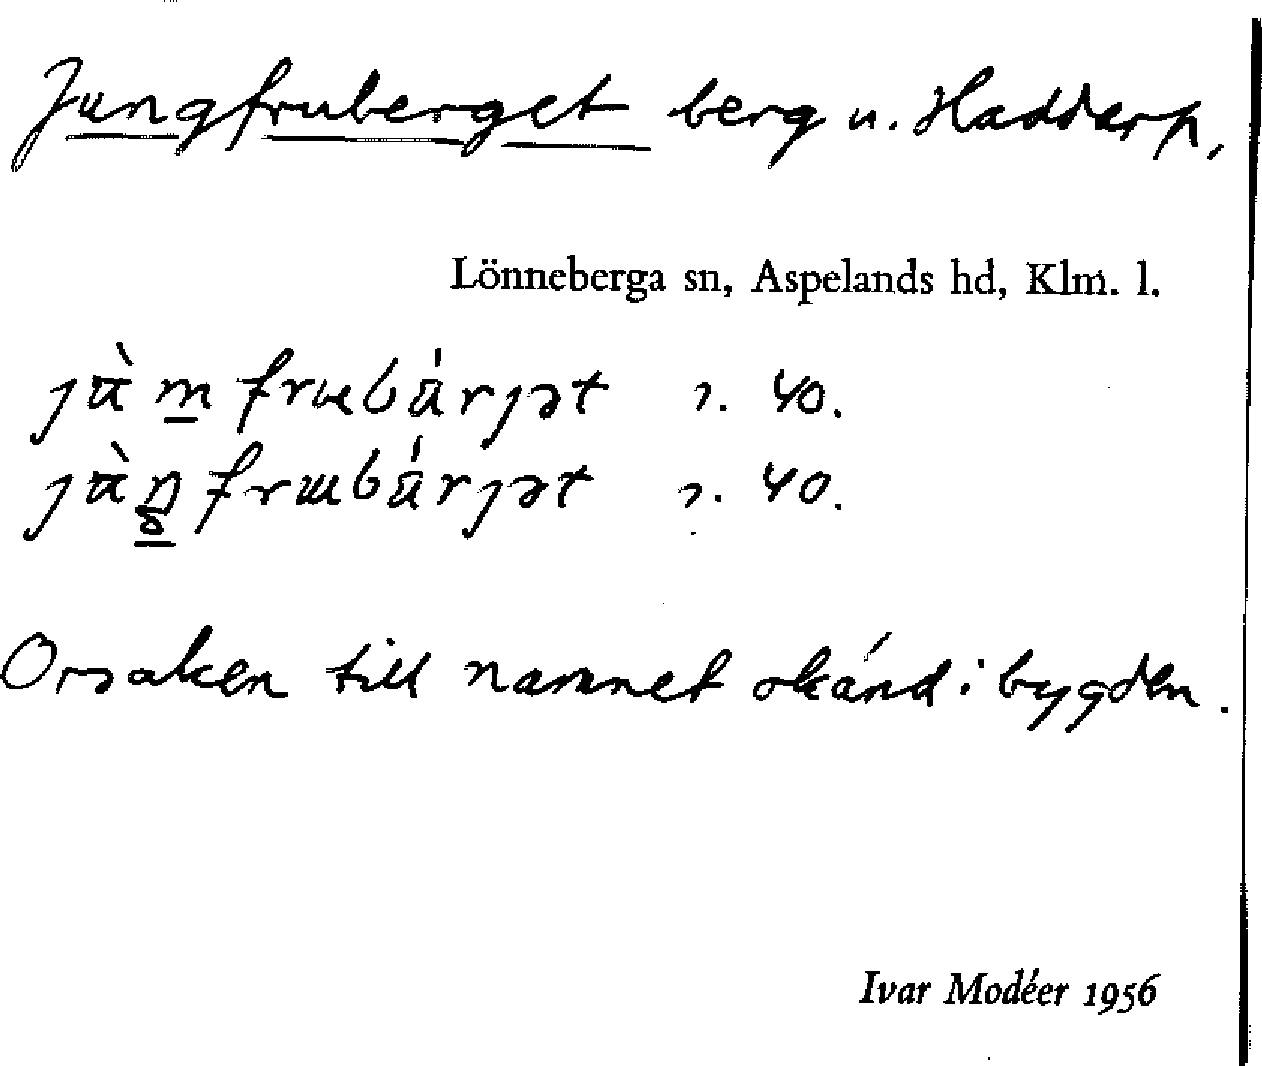 Jungfruberget berg u. Haddarp,
Lönneberga sn, Aspelands hd, Klm. l.
ı. 40.
ı. 40.
Orsaken till namnet okänd i bygden.
Ivar Modéer 1956